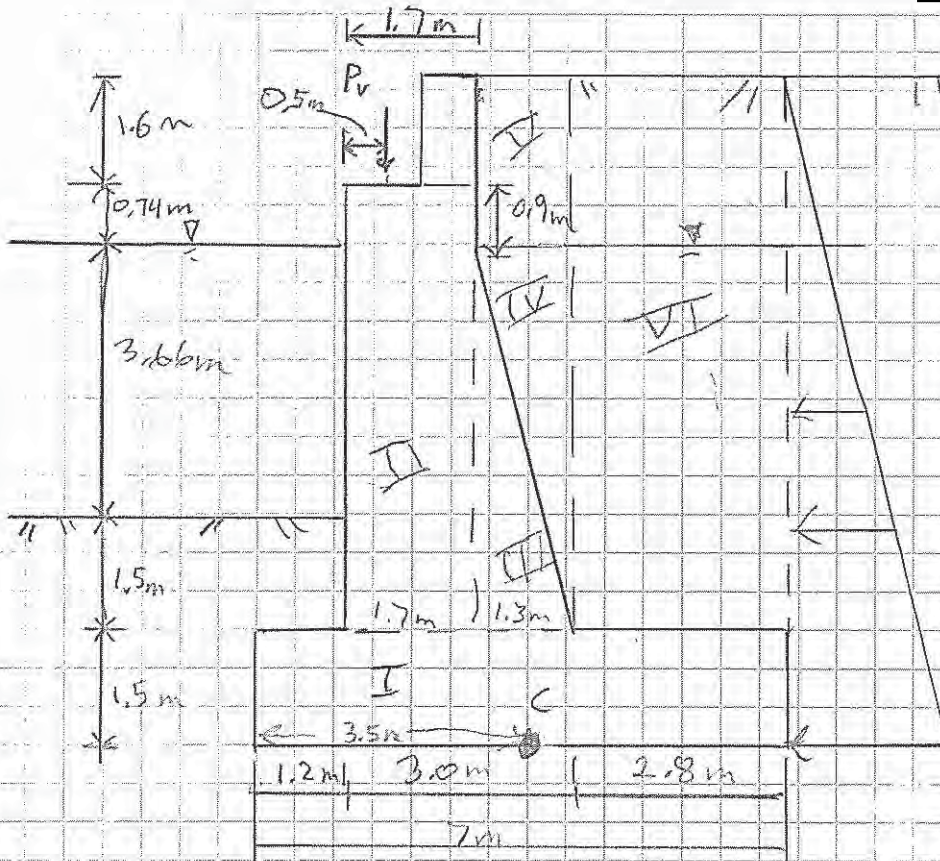 1.7m
Pv
0.5m
1.6m
V
0.74m
0.9m
IV
VI
3.66m
II
III
1.5m
1.7m
1.3m
I
1.5m
C
3.5m
1.2m
3.0m
2.8m
7m